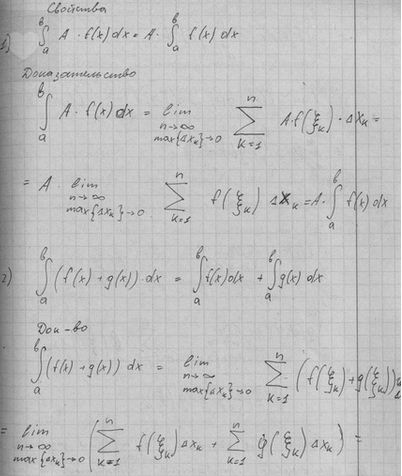 Свойства
1) ∫ₐᵇ A · f(x) dx = A · ∫ₐᵇ f(x) dx
Доказательство
∫ₐᵇ A · f(x) dx = lim_{n→∞, max{Δx_k}→0} ∑_{k=1}^{n} A·f(ξ_k) · Δx_k =
= A · lim_{n→∞, max{Δx_k}→0} ∑_{k=1}^{n} f(ξ_k) Δx_k = A · ∫ₐᵇ f(x) dx
2) ∫ₐᵇ (f(x) + g(x)) · dx = ∫ₐᵇ f(x) dx + ∫ₐᵇ g(x) dx
Док-во
∫ₐᵇ (f(x) + g(x)) dx = lim_{n→∞, max{Δx_k}→0} ∑_{k=1}^{n} (f(ξ_k) + g(ξ_k))
= lim_{n→∞, max{Δx_k}→0} (∑_{k=1}^{n} f(ξ_k) Δx_k + ∑_{k=1}^{n} g(ξ_k) Δx_k) =